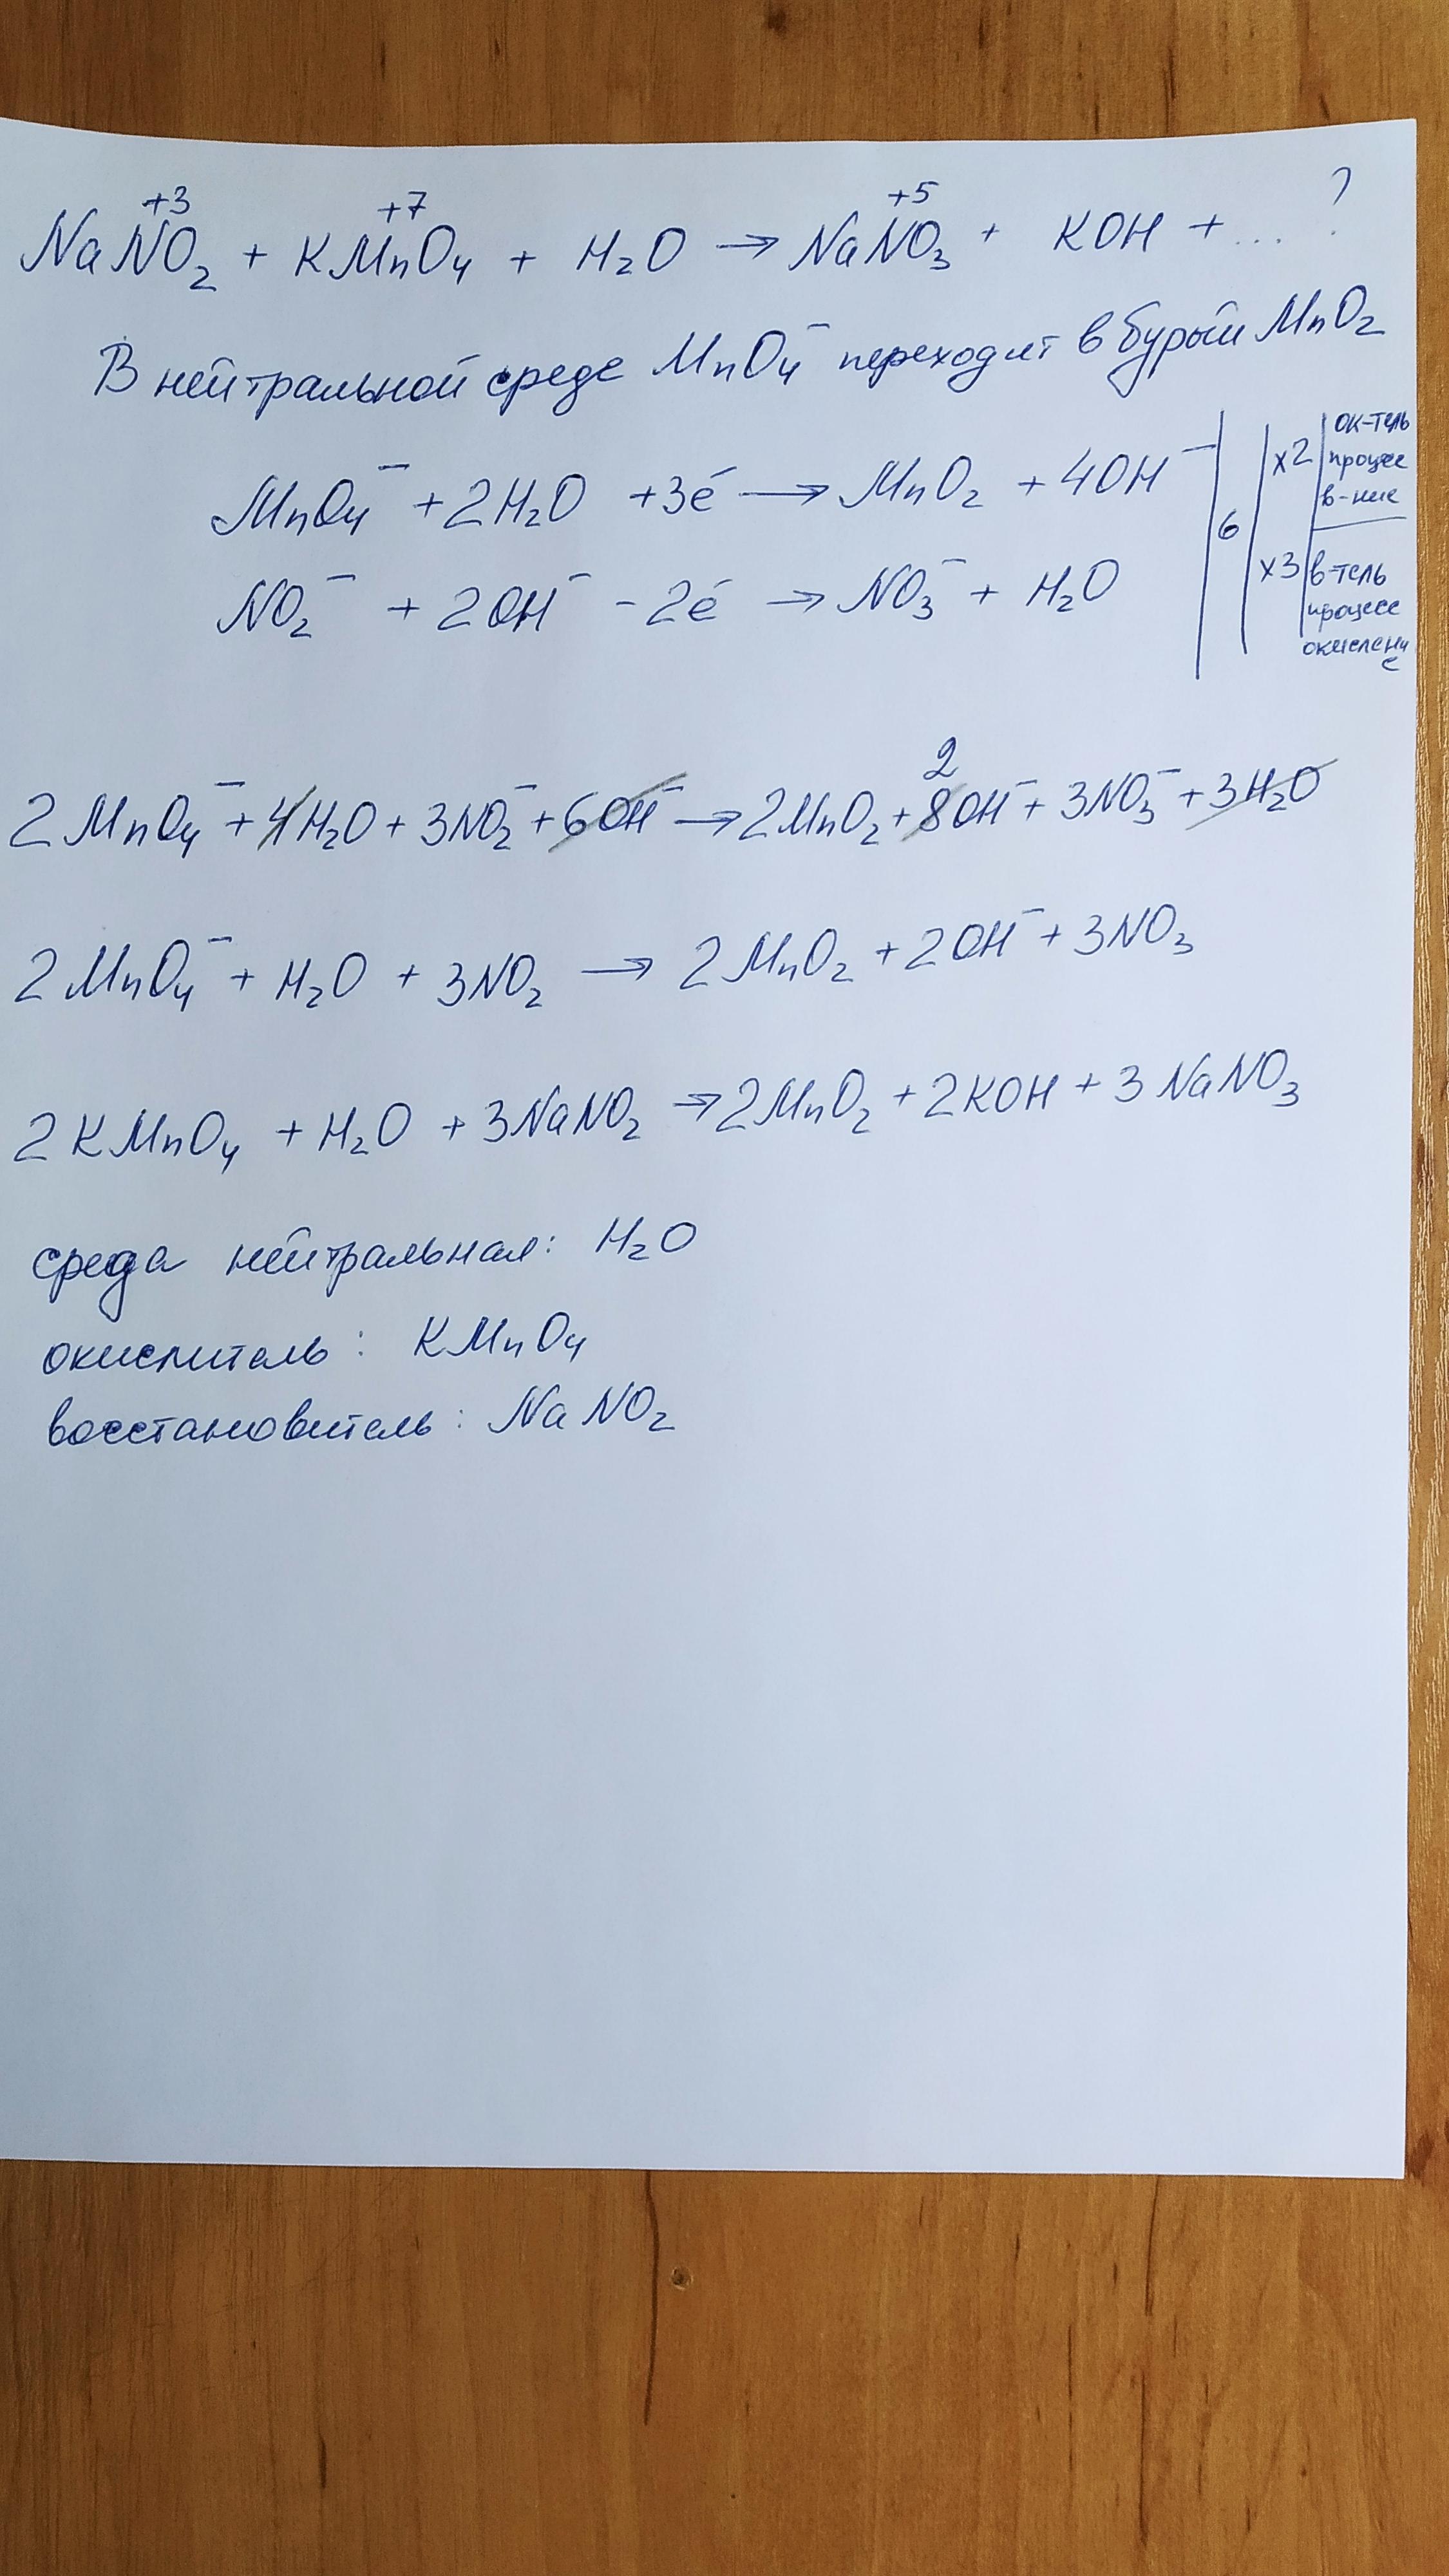 +3 +7 +5 ?
NaNO₂ + KMnO₄ + H₂O → NaNO₃ + KOH + ...
В нейтральной среде MnO₄⁻ переходит в бурый MnO₂
MnO₄⁻ + 2H₂O + 3é → MnO₂ + 4OH⁻ | 6 | x2 | ок-тель
процесс
в-ние
NO₂⁻ + 2OH⁻ - 2é → NO₃⁻ + H₂O | x3 | в-тель
процесс
окисление
2
2MnO₄⁻ + 4H₂O + 3NO₂⁻ + 6OH⁻ → 2MnO₂ + 8OH⁻ + 3NO₃⁻ + 3H₂O
2MnO₄⁻ + H₂O + 3NO₂ → 2MnO₂ + 2OH⁻ + 3NO₃
2KMnO₄ + H₂O + 3NaNO₂ → 2MnO₂ + 2KOH + 3NaNO₃
среда нейтральная: H₂O
окислитель: KMnO₄
восстановитель: NaNO₂